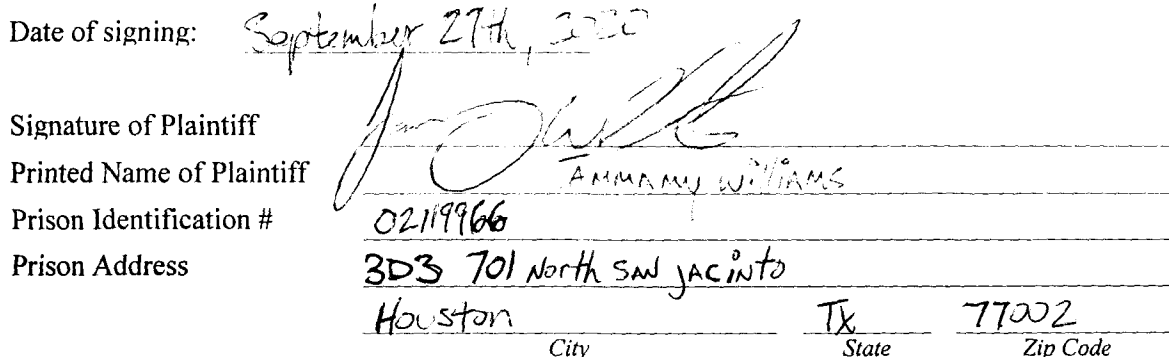 Date of signing: September 27th, 2020
Signature of Plaintiff
Printed Name of Plaintiff Williams
Prison Identification # 02119966
Prison Address 3D3 701 North SAN JACiNto
Houston Tx 77002
City State Zip Code